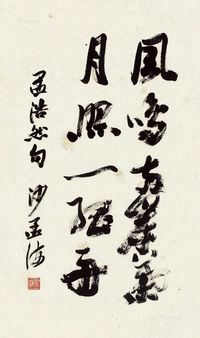 風鳴兩岸葉
月照一孤舟
孟浩然句 沙孟海